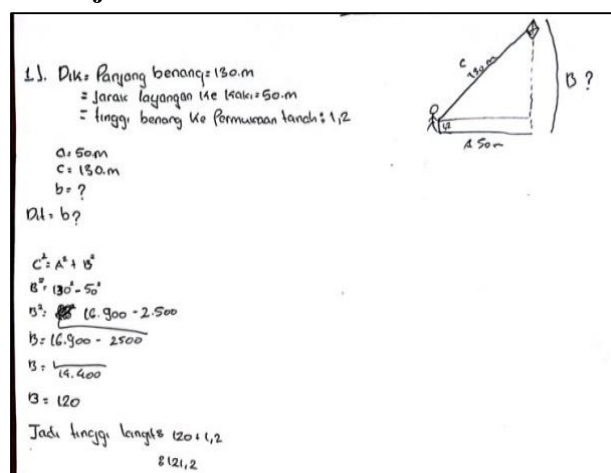 1). Dik = Panjang benang = 130.m
= Jarak layangan Ke Kaki = 50.m
= tinggi benang Ke Permukaan tanah : 1,2
a = 50m
c = 130.m
b = ?
Dit = b?
C² = A² + B²
B² = 130² - 50²
B² = 16.900 - 2.500
B = 16.900 - 2500
B = √14.400
B = 120
Jadi tinggi 120 + 1,2
= 121,2
C
130 m
B ?
1,2
A 50m